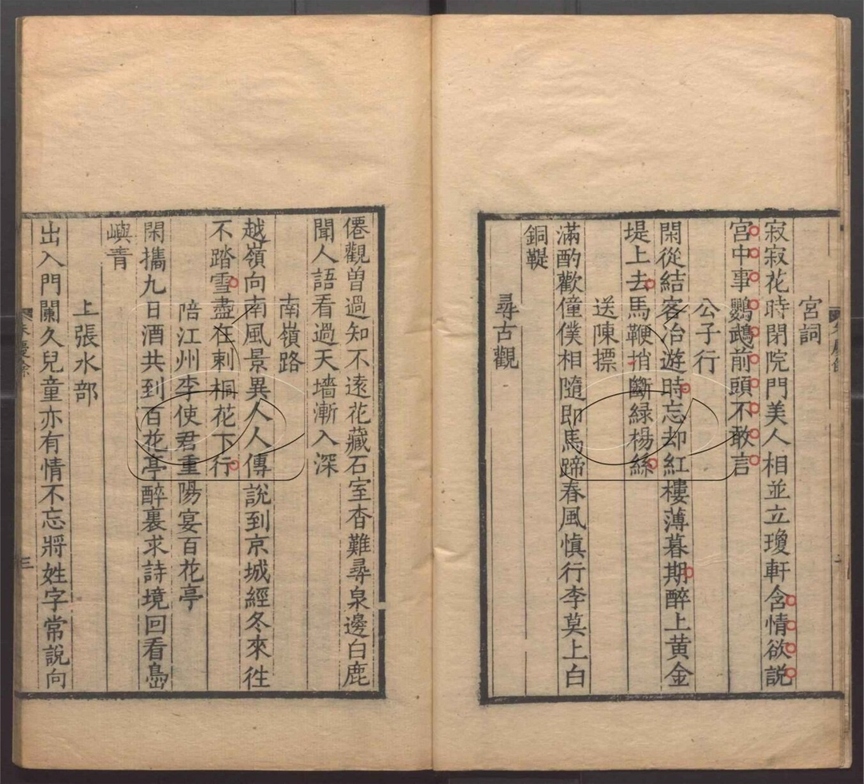 宮詞
寂寂花時閉院門美人相並立瓊軒含情欲說
宮中事鸚鵡前頭不敢言
公子行
閑從結客冶遊時忘却紅樓薄暮期醉上黃金
堤上去馬鞭捎斷緑楊絲
送陳摽
滿酌歡僮僕相隨即馬蹄春風慎行李莫上白
銅鞮
尋古觀
僊觀曾過知不遠花藏石室杳難尋泉邊白鹿
聞人語看過天墻漸入深
南嶺路
越嶺向南風景異人人傳說到京城經冬來往
不踏雪盡在刺桐花下行
陪江州李使君重陽宴百花亭
閑攜九日酒共到百花亭醉裏求詩境回看島
嶼青
上張水部
出入門闌久兒童亦有情不忘將姓字常說向
三